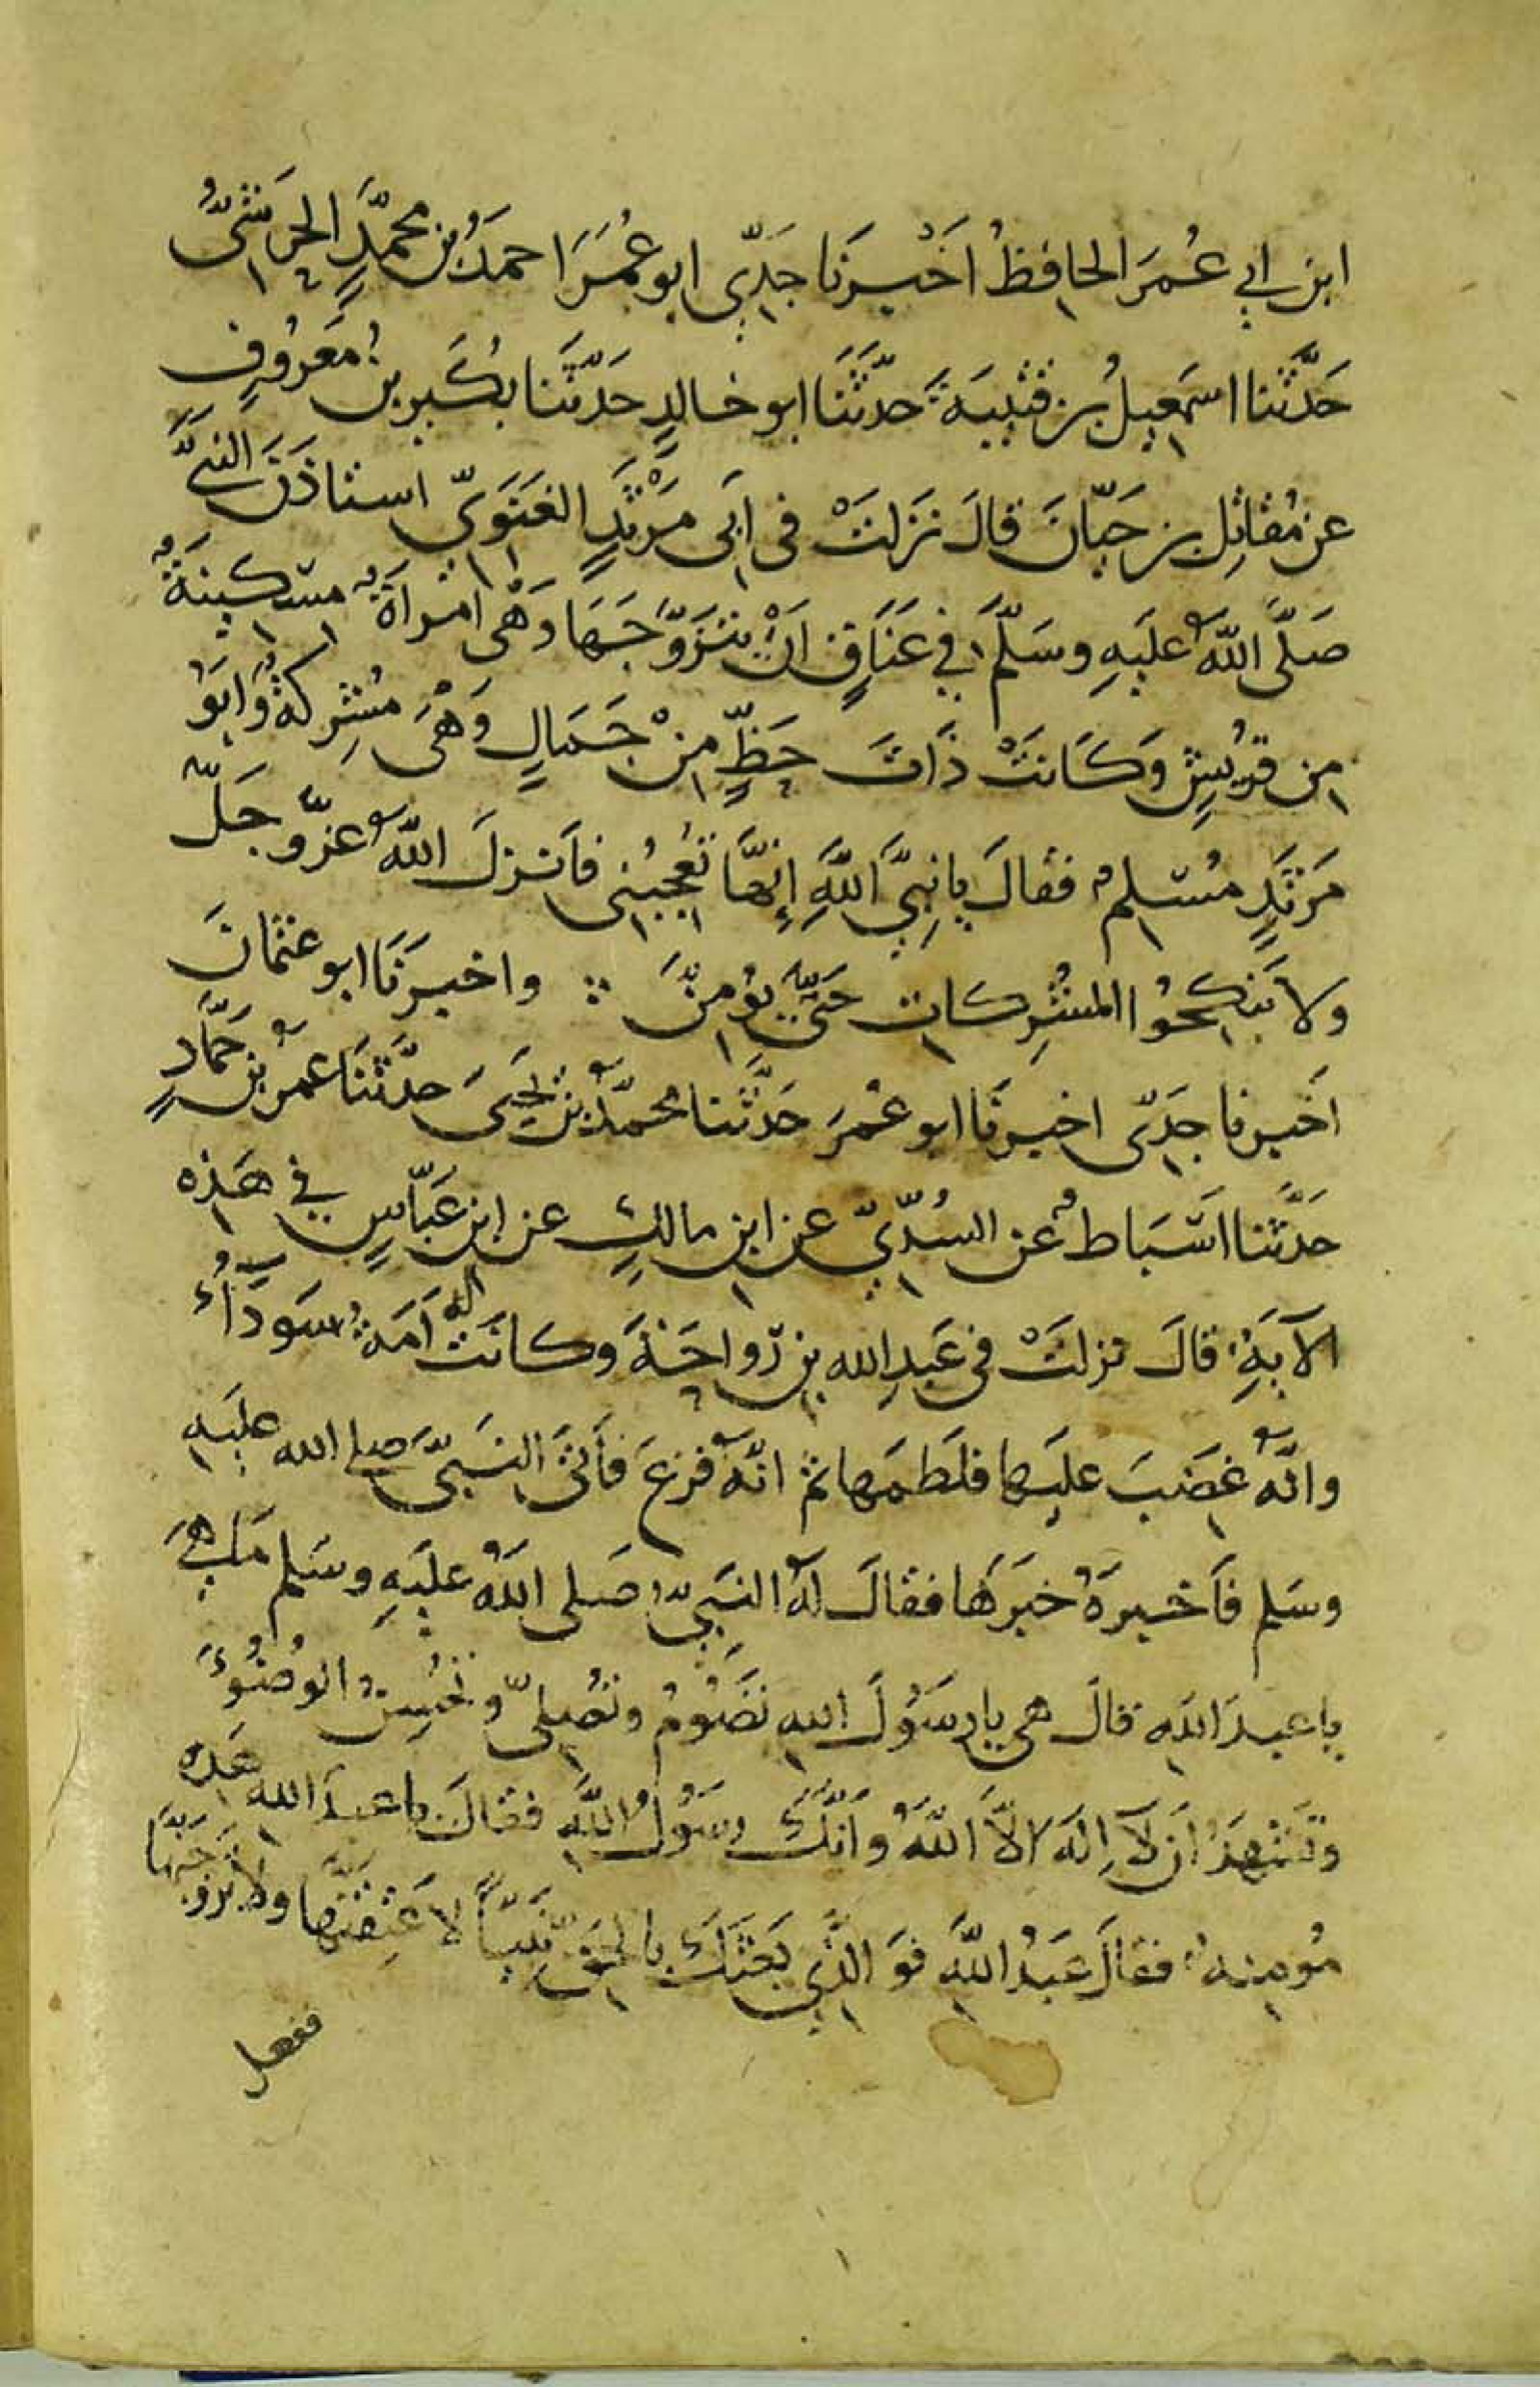 ابن ابي عُمَرَ الحافِظُ اَخْبَرَنَا جَدِّي ابو عُمَرَ احمَدُ بن محمَّدٍ الحَرَشيُّ
حَدَّثَنا اسمَعِيلُ بن قُتَيبَةَ حدَّثَنَا ابو خالدٍ حَدَّثَنا بُكَير بنُ مَعرُوفٍ
عن مُقاتِل بن حَيّانَ قالَ نَزَلتْ فى اَبى مَرْثَدٍ الغَنَوَيِّ استاذَنَ النبيَّ
صَلَّى اللّهُ عَليَهِ وسَلَّمَ في عَنَاقٍ اَنْ يتَزَوَّجَهَا وَهْى امراَةٌ مسكينَةٌ
من قرُيشٍ وَكَانَتْ ذَاتَ حَظٍّ مِنْ جَمَالٍ وَهْىَ مُشِركَةٌ وَابَوُ
مَرثَدٍ مُسْلمٌ فقالَ يا نِبيَّ اللَّهِ إِنَّهَا تُعْجِبُنِى فاَنزلَ اللّهُ عزّ وجَلّ
ولا تَنكِحُوا المشُرِكات حَتىّ يوُمِنَّ واخبرَنَا ابو عثمانَ
اَخَبرنا جَدّى اخبرنَا ابو عُمرَ حَدَّثَنا محمدُّ بن يَحيىَ حدَّثنَا عَمْرُ بن حَمَّادٍ
حدَّثنا اَسْبَاطٌ عن السُدّيّ عن ابن مالكٍ عن ابن عَبّاسٍ في هَذه
الآيَةِ قالَ نزلَتْ فى عَبدِالله بن رَواحَةَ وكانَتْ له اَمَةٌ سَودَآءُ
وانّهُ غضَبَ عليَها فلَطمَها ثم انّهُ فزعَ فأتىَ النبَيّ صلى الله عليَه
وسَلم فاَخبرهُ خبَرهَا فقالَ لهُ النبِيُّ صَلى اللهُ عليَهِ وسَلم مَا هىَ
يا عبدَ اللهِ قالَ هى يا رسَوُلَ اللهِ تصَوُمُ وتصُلىّ وتُحسِنُ الوُضُوُءَ
وتَشْهَدُ اَن لآ اِلَهَ الاَّ اللّهُ وَاَنَّكَ رسَوُلُ اللَّهِ فقالَ يا عبدَ الله هَذه
مُومِنةٌ فقالَ عَبدُ اللَّهِ فوَ الَّذِي بَعَثَكَ بالحقّ نَبِيّاً لاعَتِقَنّهَا ولاتزوجَنَّهَا
ففعل